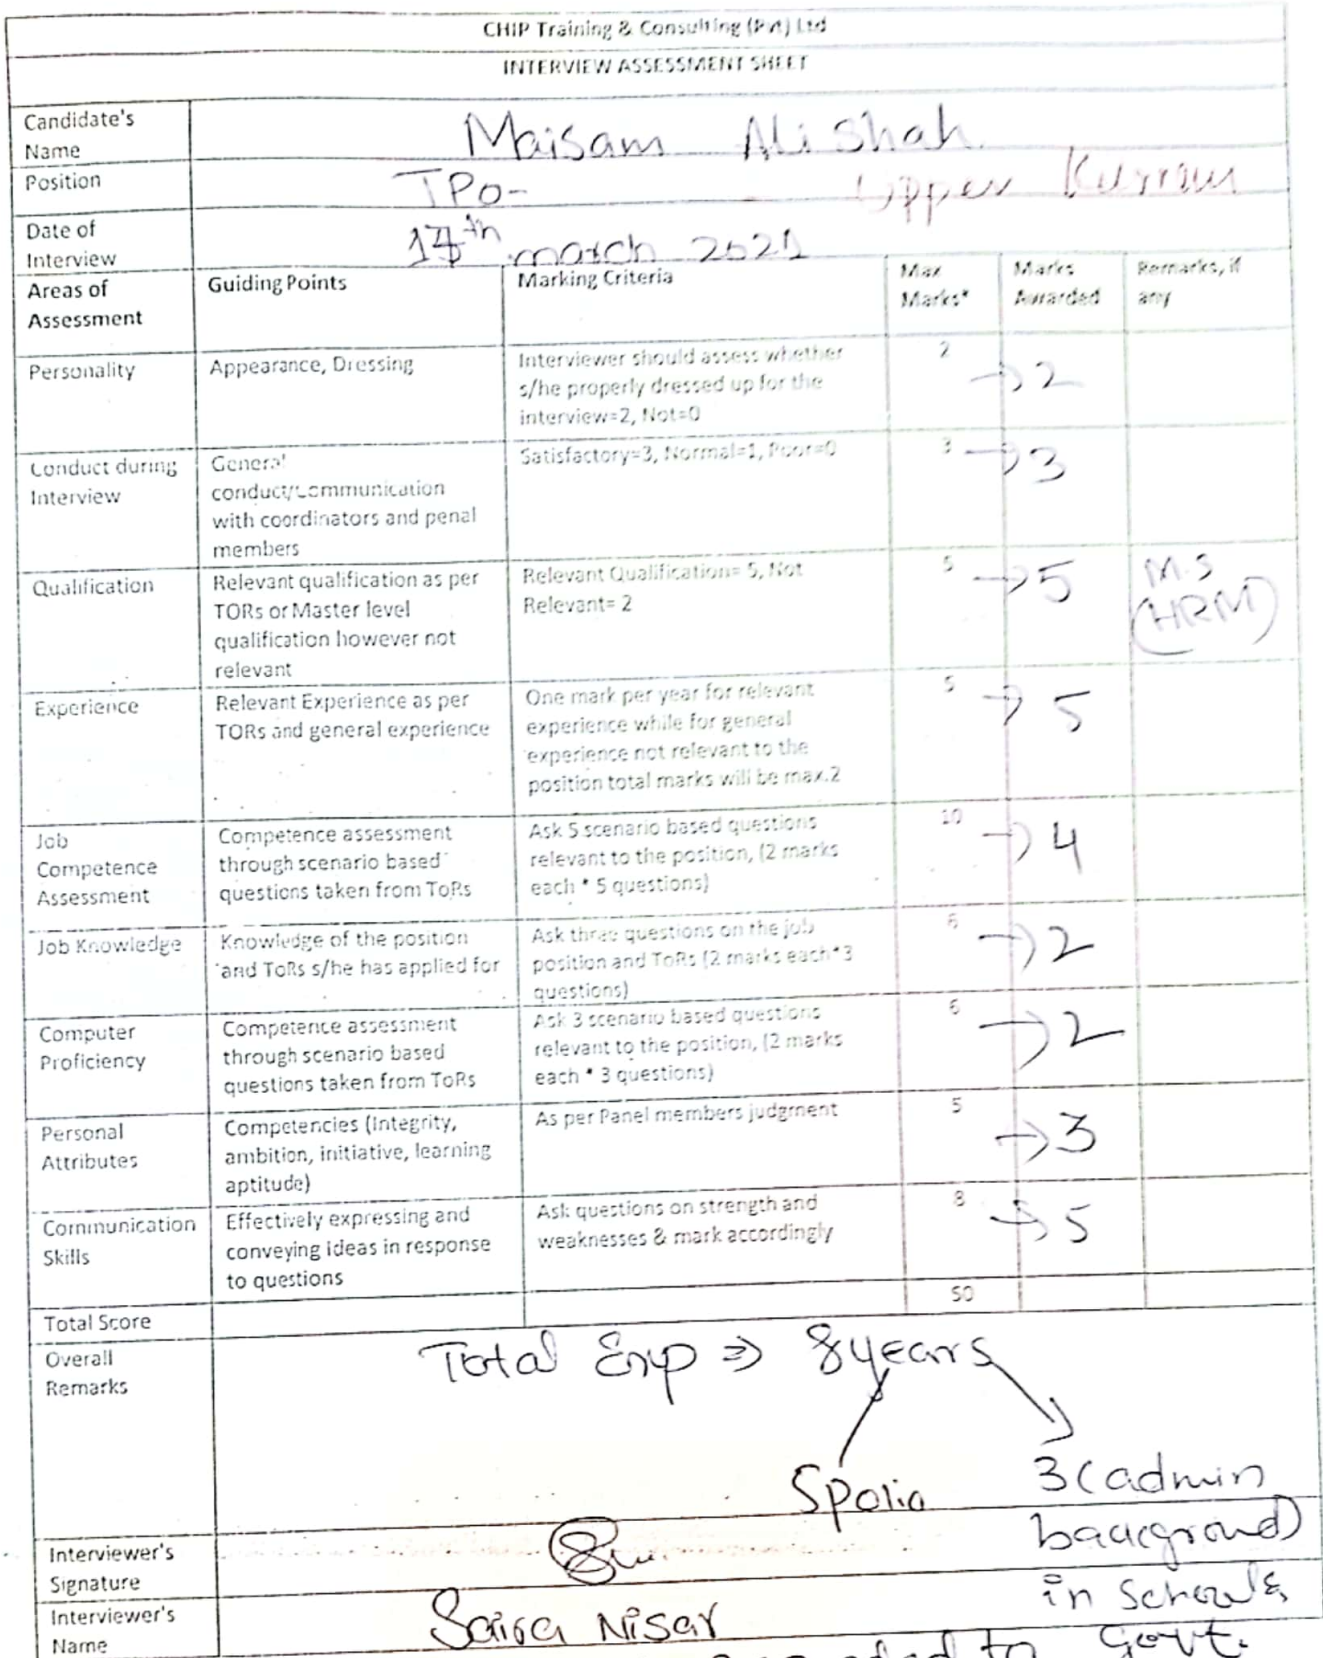 CHIP Training & Consulting (Pvt) Ltd
INTERVIEW ASSESSMENT SHEET
Candidate's Name Maisam Ali Shah
Position TPO- Upper Kurram
Date of Interview 17th march 2021
Areas of Assessment Guiding Points Marking Criteria Max Marks* Marks Awarded Remarks, if any
Personality Appearance, Dressing Interviewer should assess whether s/he properly dressed up for the interview=2, Not=0 2 →2
Conduct during Interview General conduct/Communication with coordinators and penal members Satisfactory=3, Normal=1, Poor=0 3 →3
Qualification Relevant qualification as per TORs or Master level qualification however not relevant Relevant Qualification= 5, Not Relevant= 2 5 →5 M.S (HRM)
Experience Relevant Experience as per TORs and general experience One mark per year for relevant experience while for general experience not relevant to the position total marks will be max.2 5 →5
Job Competence Assessment Competence assessment through scenario based questions taken from ToRs Ask 5 scenario based questions relevant to the position, (2 marks each * 5 questions) 10 →4
Job Knowledge Knowledge of the position and ToRs s/he has applied for Ask three questions on the job position and ToRs (2 marks each*3 questions) 6 →2
Computer Proficiency Competence assessment through scenario based questions taken from ToRs Ask 3 scenario based questions relevant to the position, (2 marks each * 3 questions) 6 →2
Personal Attributes Competencies (Integrity, ambition, initiative, learning aptitude) As per Panel members judgment 5 →3
Communication Skills Effectively expressing and conveying ideas in response to questions Ask questions on strength and weaknesses & mark accordingly 8 →5
Total Score 50
Overall Remarks Total Exp ⇒ 8 years
5 Polio 3 (admin
background)
in schools
Interviewer's Signature
Interviewer's Name Saira Nisar
to Govt.